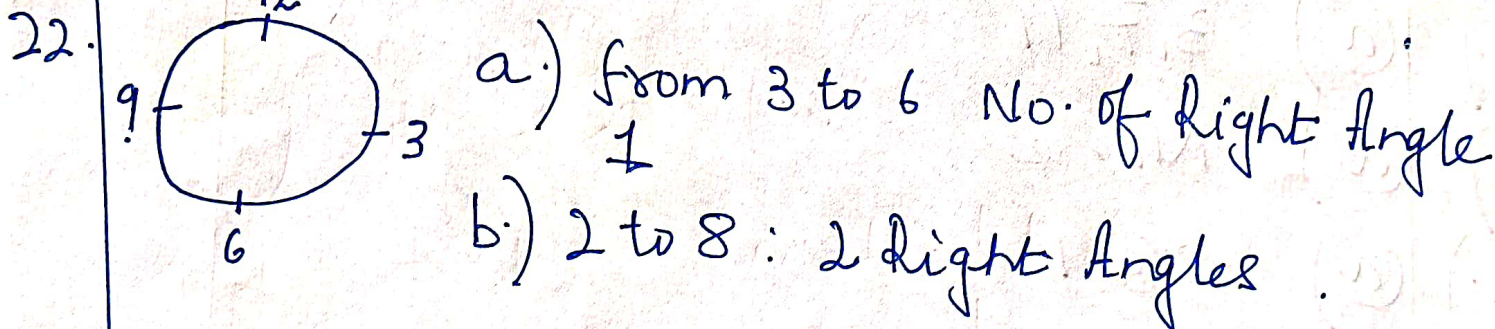 22.
12
9
3
6
a.) from 3 to 6 No. of Right Angle
1
b.) 2 to 8 : 2 Right Angles.